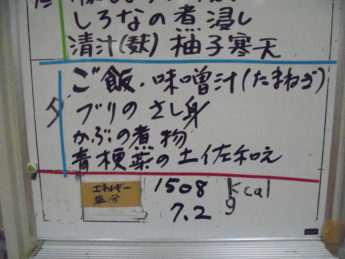 しろなの煮浸し
清汁(麩) 柚子寒天
夕
ご飯・味噌汁(たまねぎ)
ブリのさし身
かぶの煮物
青梗菜の土佐和え
エネルギー 1508 kcal
塩分 7.2 g